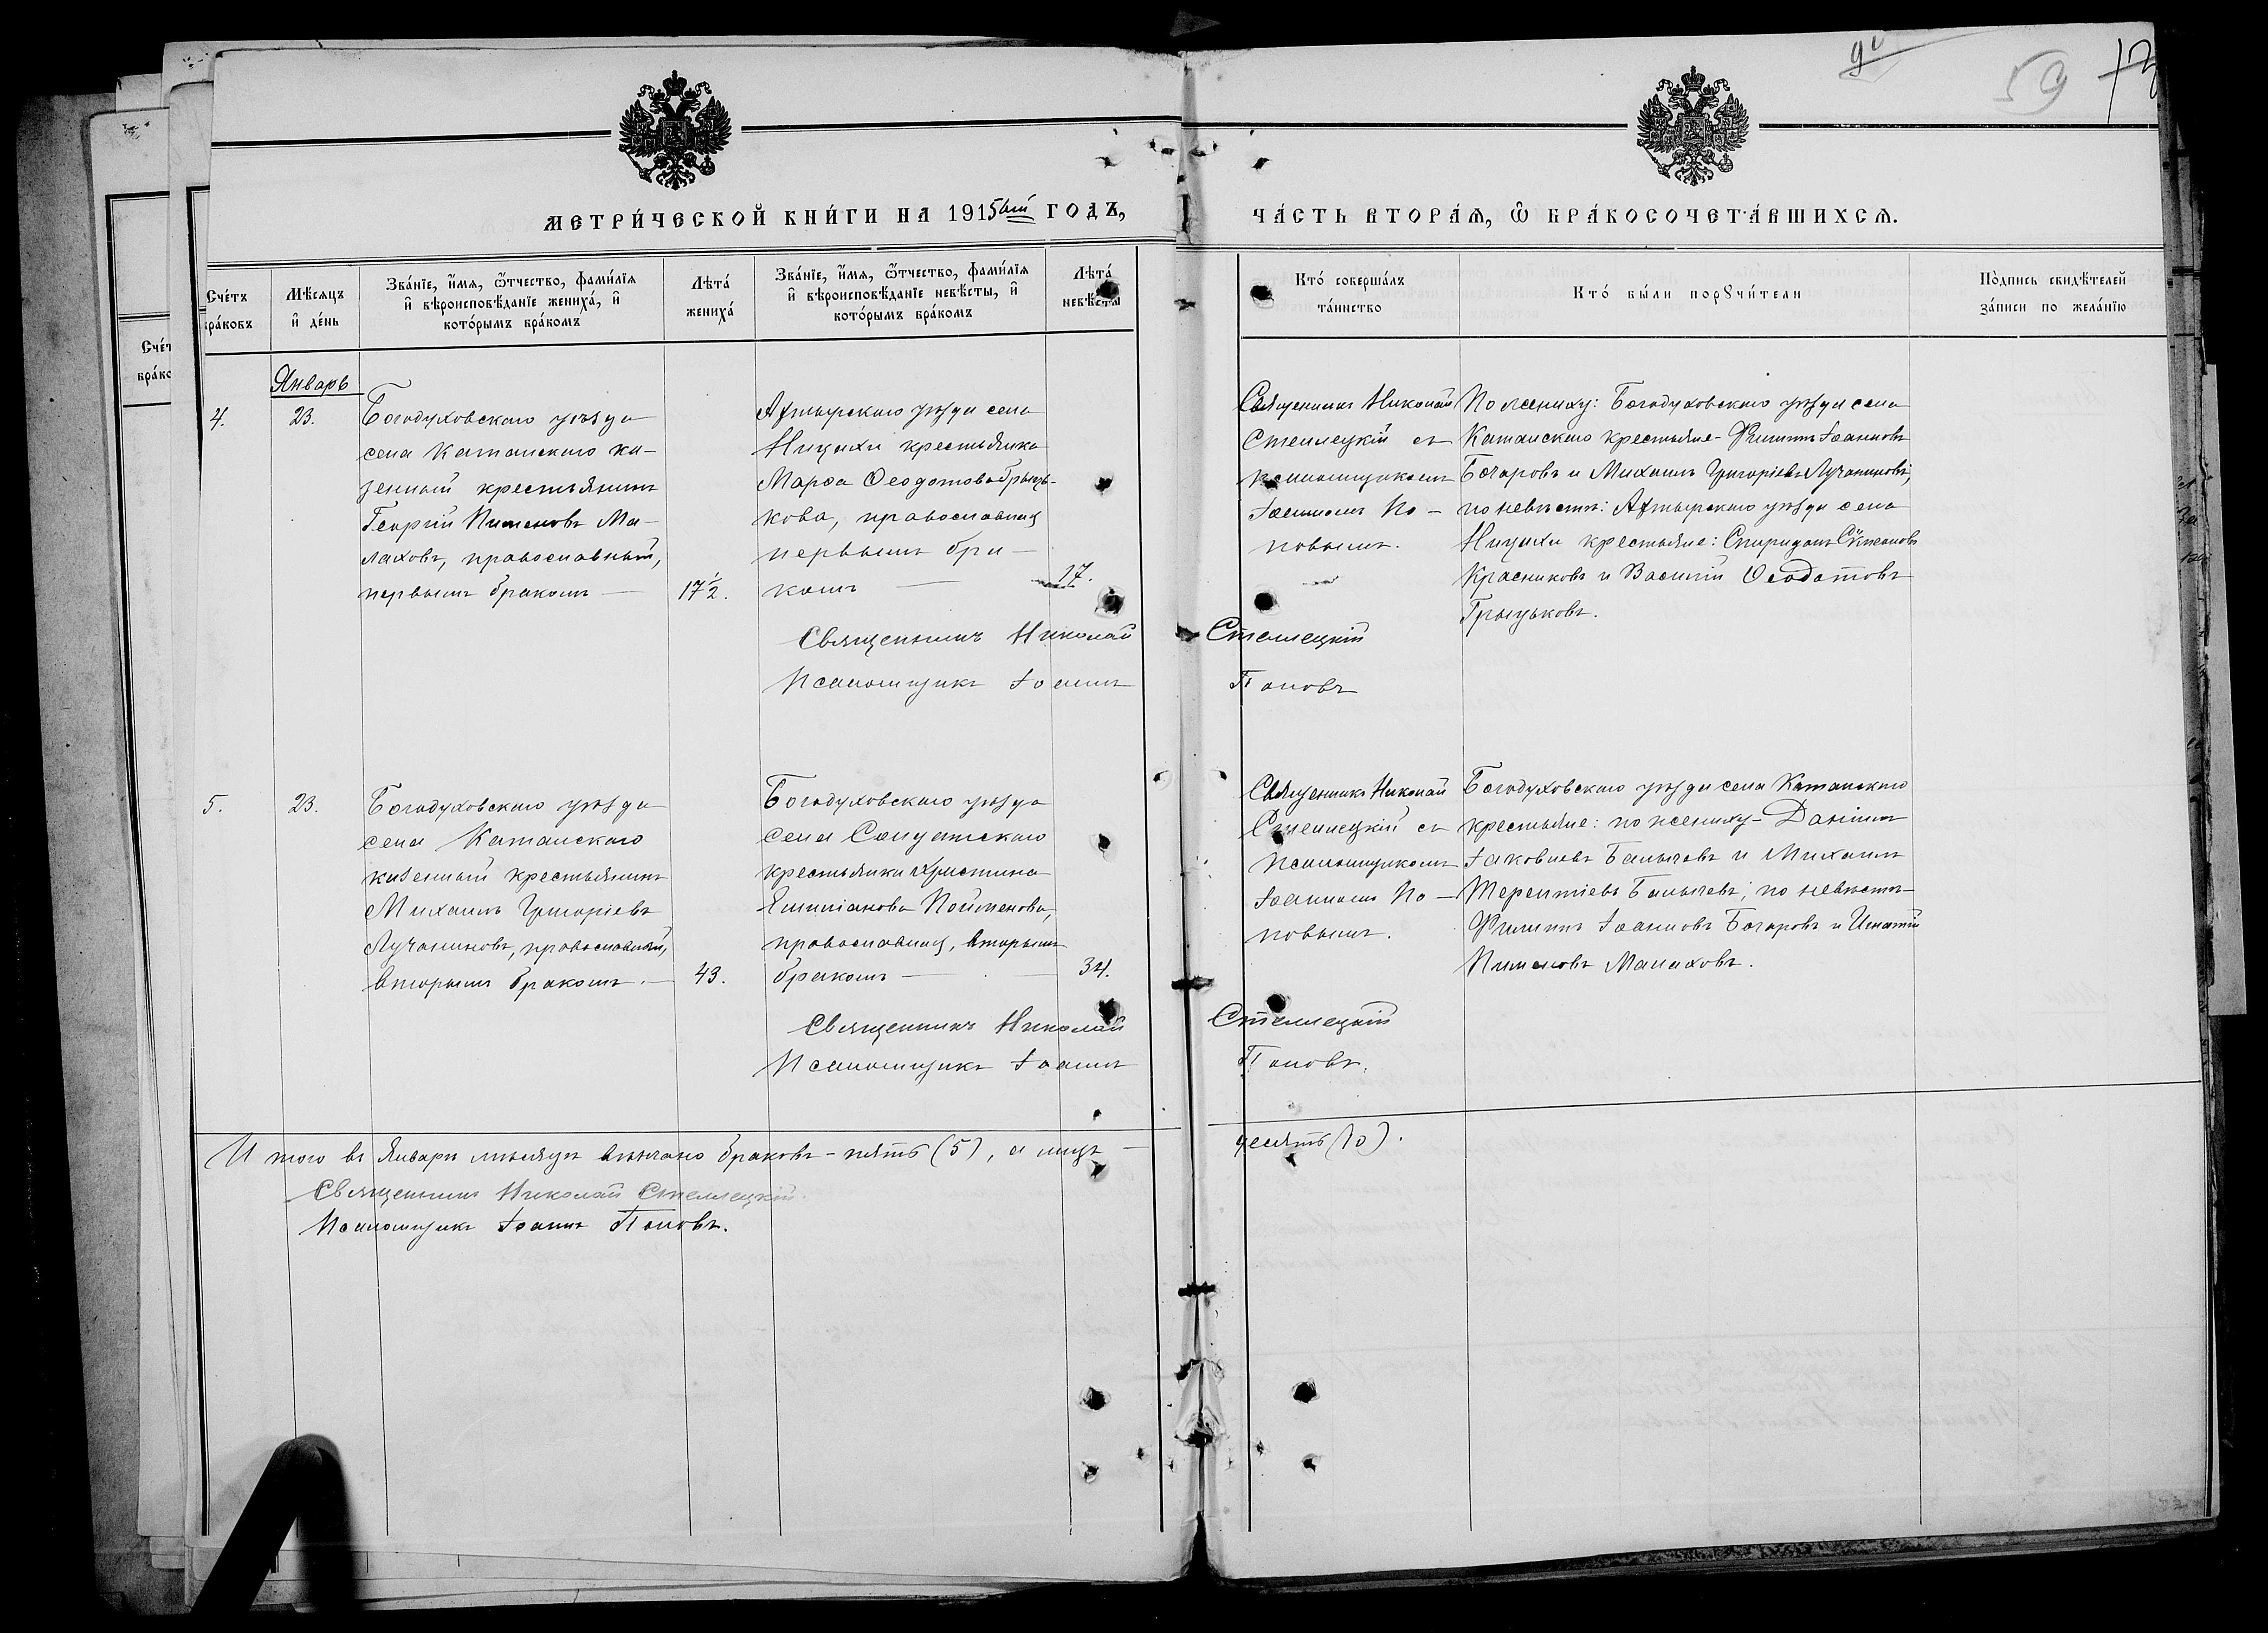 59
МЕТРИ́ЧЕСКОЙ КНИ́ГИ НА 1915ый ГОДЪ,
ЧА́СТЬ ВТОРА́Ѧ, Ѽ БРА́КОСОЧЕТА́ВШИХСѦ.
Сче́тъ
бра́ковъ
Мѣ́сѧцъ
и҆ де́нь
Зва́нїе, и҆́мѧ, ѻ҆́тчество, фами́лїѧ
и҆ вѣроисповѣ́данїе жениха́, и҆
кото́рымъ бра́комъ
Лѣта́
жениха́
Зва́нїе, и҆́мѧ, ѻ҆́тчество, фами́лїѧ
и҆ вѣроисповѣ́данїе невѣ́сты, и҆
кото́рымъ бра́комъ
Лѣта́
невѣ́сты
Кто́ соверша́лъ
та́инство
Кто́ бы́ли порꙋчи́тели
По́дпись свидѣ́телей
за́писи по жела́нїю
Январь
4.
23.
Богодуховскаго уѣзда
села Катанскаго ка-
зенный крестьянинъ
Георгій Пименовъ Ма-
лаховъ, православный,
первымъ бракомъ —
17½.
Ахтырскаго уѣзда села
Ницахи крестьянка
Марѳа Ѳеодотова Грыць-
кова, православная,
первымъ бра-
комъ —
17.
Священникъ Николай
Стеллецкій съ
псаломщикомъ
Іоанномъ По-
повымъ.
По жениху: Богодуховскаго уѣзда села
Катанскаго крестьяне - Филиппъ Іоанновъ
Бочаровъ и Михаилъ Григоріевъ Лучаниновъ;
по невѣстѣ: Ахтырскаго уѣзда села
Ницахи крестьяне: Спиридонъ Стефановъ
Красниковъ и Василій Ѳеодотовъ
Грыцьковъ.
Священникъ Николай Стеллецкій
Псаломщикъ Іоаннъ Поповъ
5.
23.
Богодуховскаго уѣзда
села Катанскаго
казенный крестьянинъ
Михаилъ Григоріевъ
Лучаниновъ, православный,
вторымъ бракомъ. —
43.
Богодуховскаго уѣзда
села Солдатскаго
крестьянка Христина
Емиліанова Пойменова,
православная, вторымъ
бракомъ —
34.
Священникъ Николай
Стеллецкій съ
псаломщикомъ
Іоанномъ По-
повымъ.
Богодуховскаго уѣзда села Катанскаго
крестьяне: по жениху - Даніилъ
Іаковлевъ Балычевъ и Михаилъ
Терентіевъ Балычевъ; по невѣстѣ -
Филиппъ Іоанновъ Бочаровъ и Игнатій
Пименовъ Малаховъ.
Священникъ Николай Стеллецкій
Псаломщикъ Іоаннъ Поповъ.
Итого въ Январѣ мѣсяцѣ вѣнчано браковъ - пять (5), а лицъ — десять (10).
Священникъ Николай Стеллецкій.
Псаломщикъ Іоаннъ Поповъ.